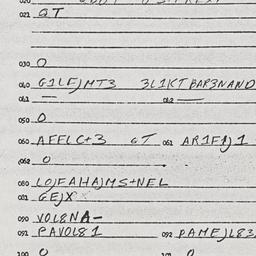 021 QT
030 O
040 G1LEJMT3 3L1KT BAR3NAND
041 — 042 —
050 O
060 AFFLC+3 GT 061 AR1F1J1
062 O
080 LOJFAHAJMS+NEL
081 GEJX
090 VOL8NA-
091 PAVOL81 092 PAMEJL83
100 O 101 O